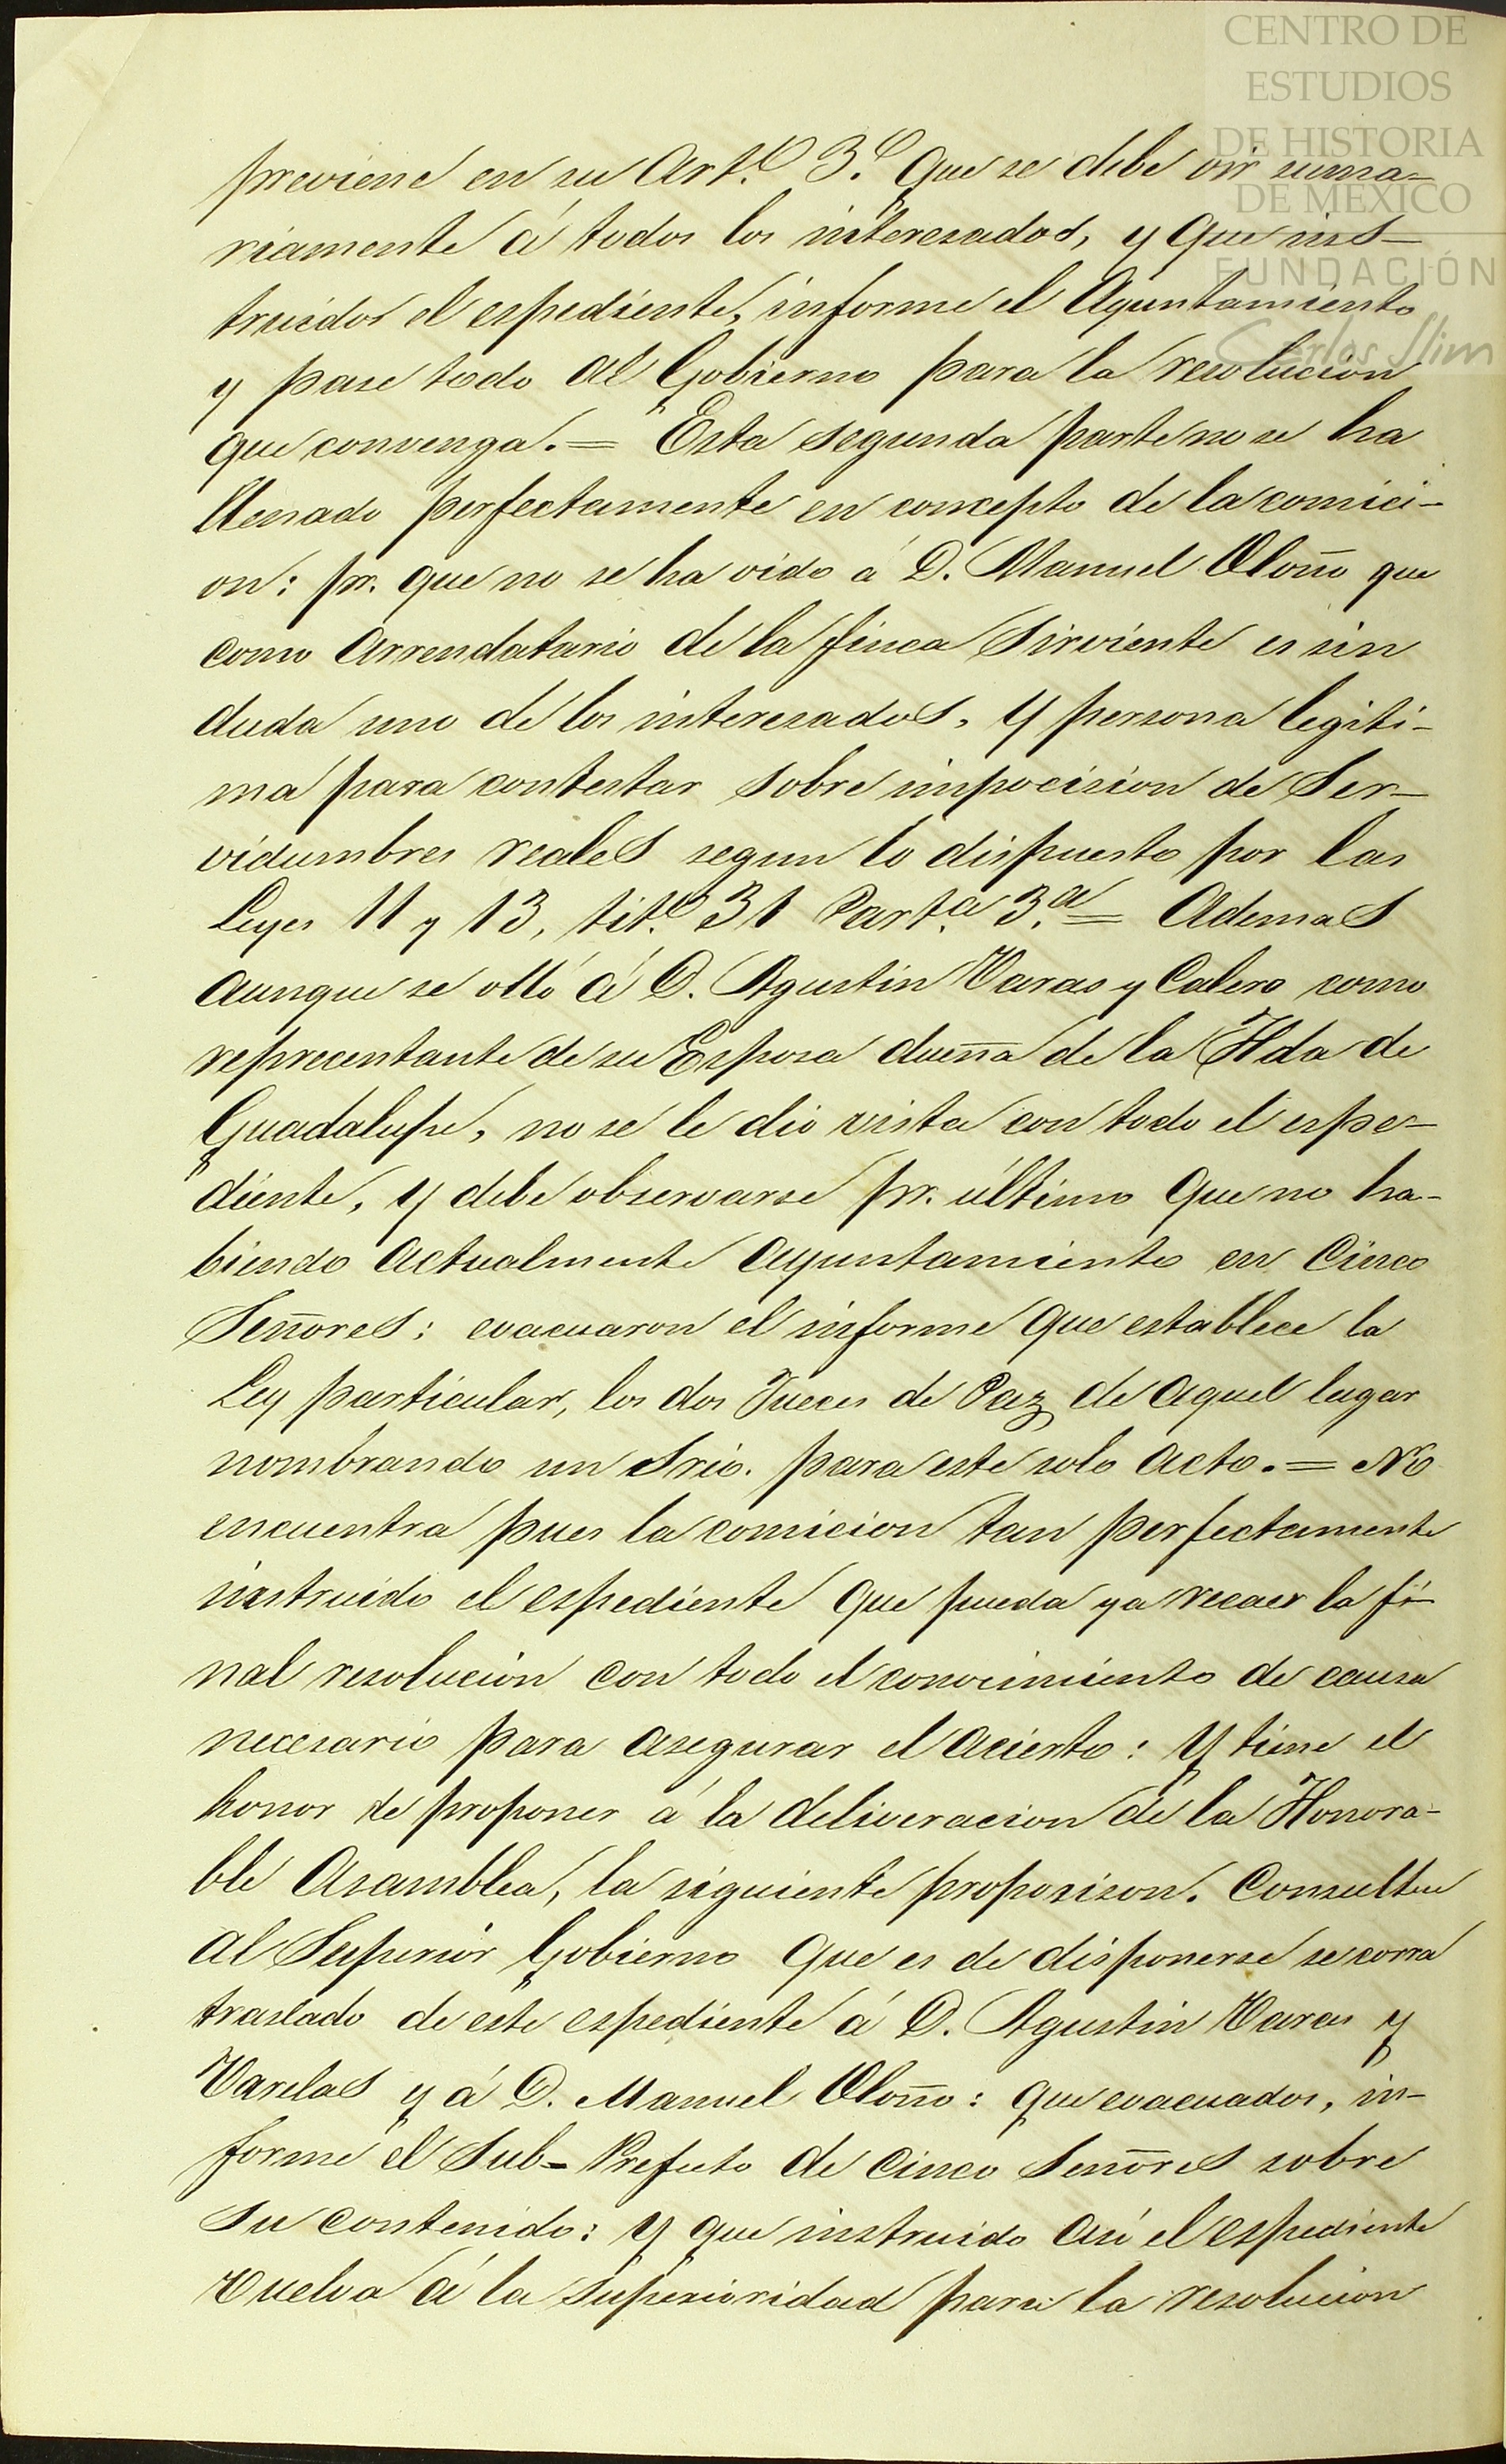 CENTRO DE
ESTUDIOS
DE HISTORIA
DE MÉXICO
FUNDACIÓN
Carlos Slim
previene en su Art.º 3.º que se debe oir suma-
riamente á todos los interesados, y que ins-
truidos el espediente, informe el Ayuntamiento
y pase todo al Gobierno para la resolucion
que convenga.= Esta segunda parte no se ha
llenado perfectamente en concepto de la comici-
on: pr. que no se ha oido á D. Manuel Oloño que
como Arrendatario de la finca Sirviente es sin
duda uno de los interesados, y persona legiti-
ma para contestar sobre impocision de Ser-
vidumbres reales segun lo dispuesto por las
Leyes 11 y 13, tit.º 31 Part.ª 3.ª= Ademas
aunque se olló á D. Agustin Varas y Calero como
reprecentante de su Esposa dueña de la Hda de
Guadalupe, no se le dio vista con todo el espe-
diente, y debe observarse pr. último que no ha-
biendo actualmente ayuntamiento en Cinco
Señores: evacuaron el informe que establece la
Ley particular, los dos Jueces de Paz de aquel lugar
nombrando un Srio. para este solo acto.= No
encuentra pues la comicion tan perfectamente
instruido el espediente que pueda ya recaer la fi-
nal resolucion con todo el conocimiento de causa
necesario para asegurar el acierto: y tiene el
honor de proponer á la deliveracion de la Honora-
ble Asamblea, la siguiente proposison. Consultese
al Superior Gobierno que es de disponerse se corra
traslado de este espediente á D. Agustin Varas y
Varelas y á D. Manuel Oloño: que evacuados, in-
forme el Sub=Prefecto de Cinco Señores sobre
su contenido: y que instruido asi el espediente
vuelva á la superioridad para la resolucion